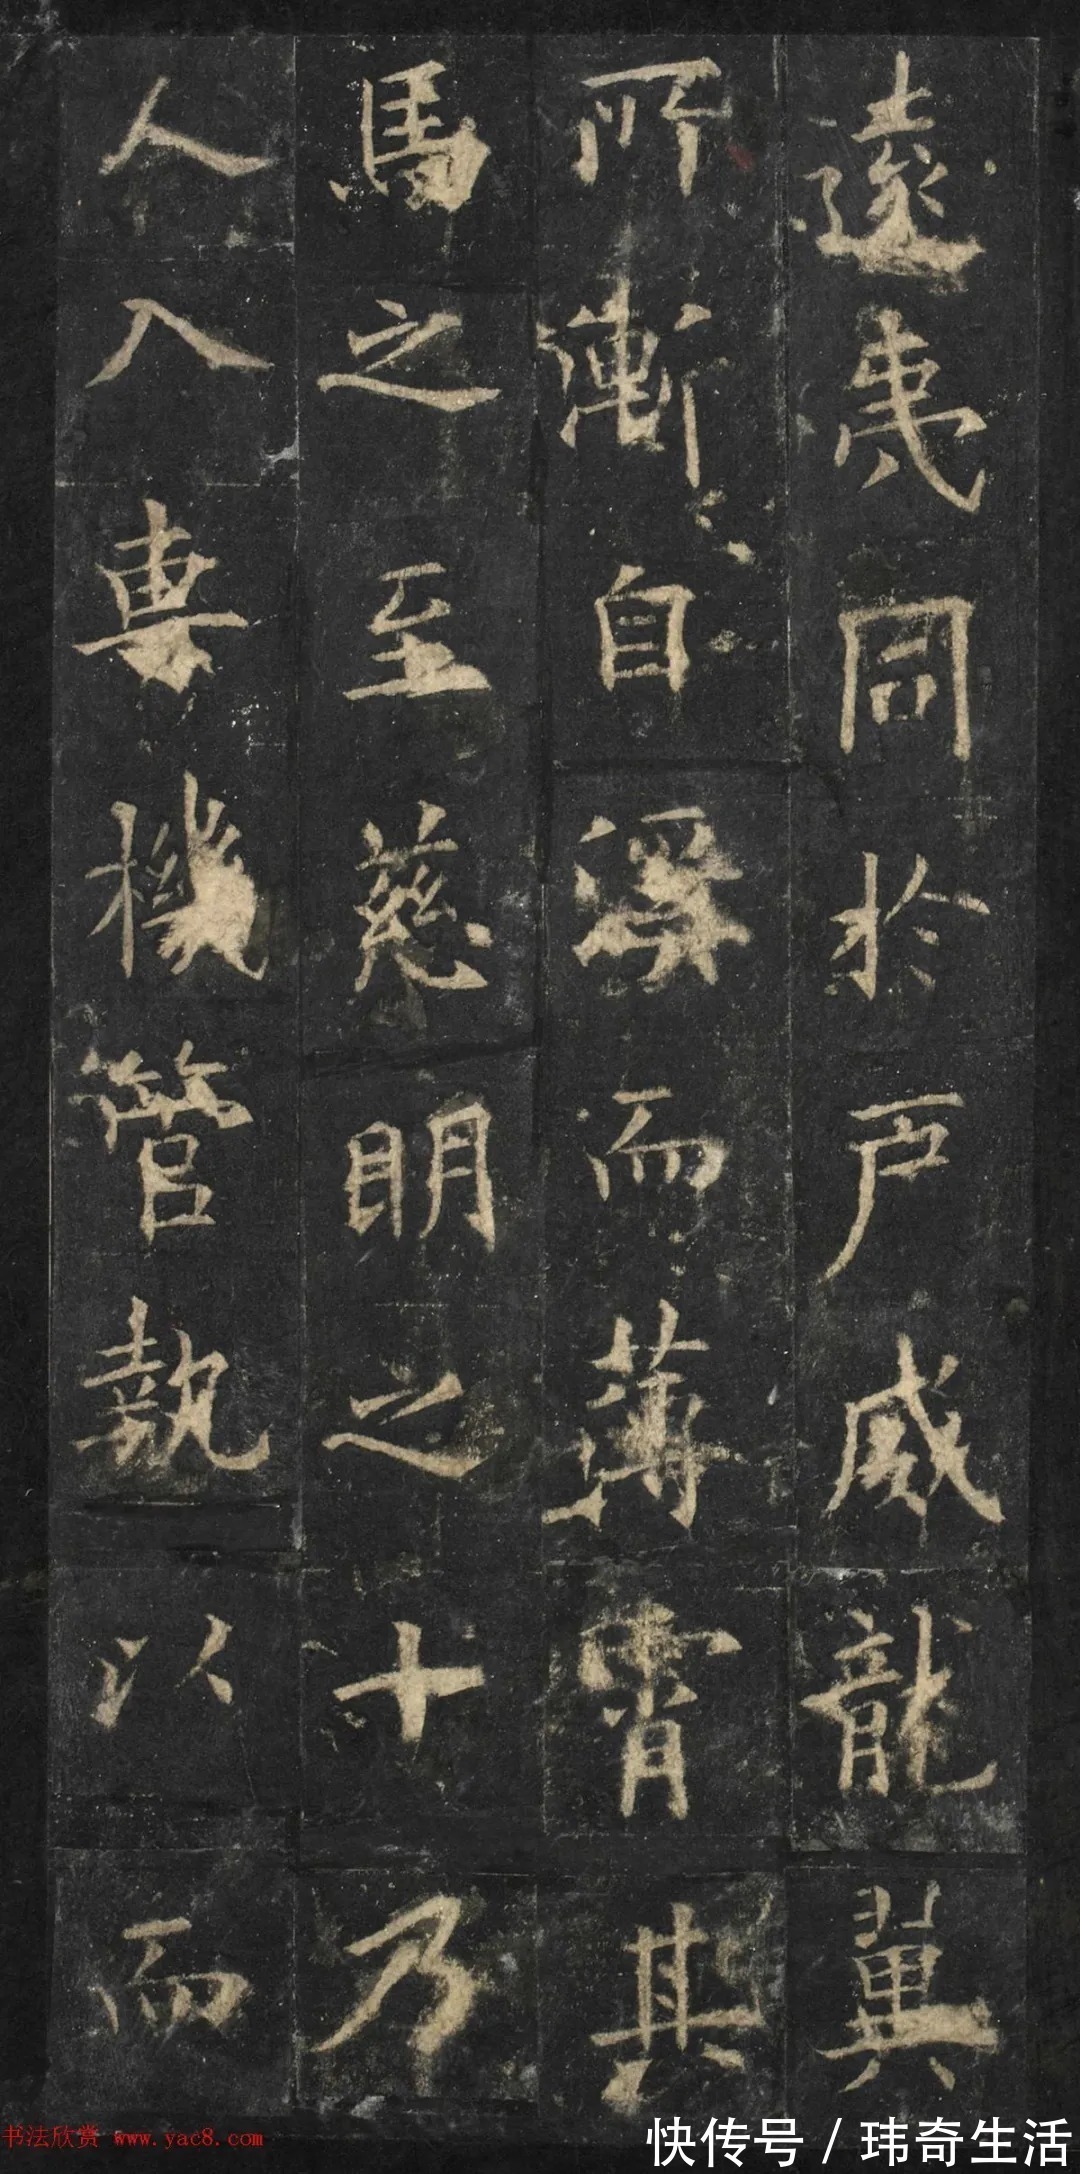 遠夷同於戶庭威龍冀
所漸自溪而薄霄其
馬之至慈明之十乃
人入妻機管執以而
书法欣赏 www.yac8.com
快传号 / 玮奇生活